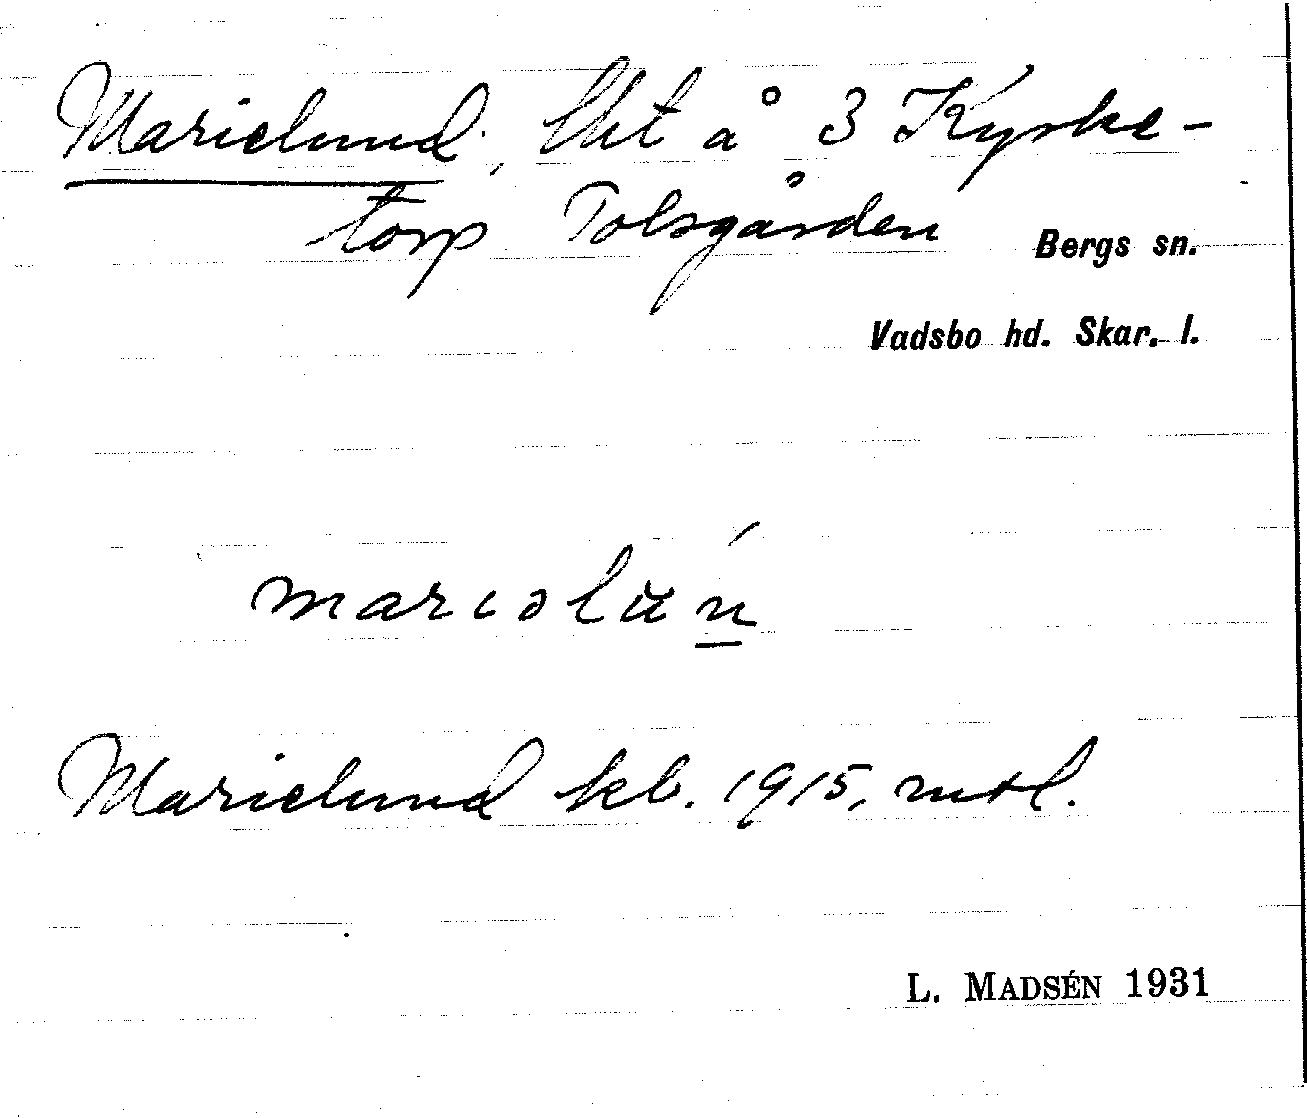 Marielund, lht å 3 Kyrke-
torp Tolsgården Bergs sn.
Vadsbo hd. Skar. l.
mariəlu̇n̲
Marielund kb. 1915, mtl.
L. MADSÉN 1931